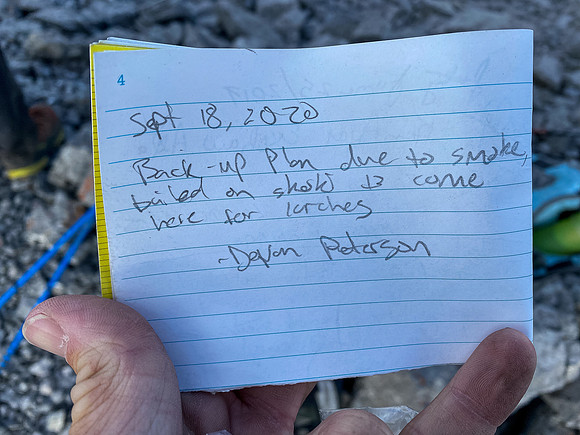 4
Sept 18, 2020
Back-up Plan due to smoke,
bailed on skoki to come
here for larches
-Devon Peterson